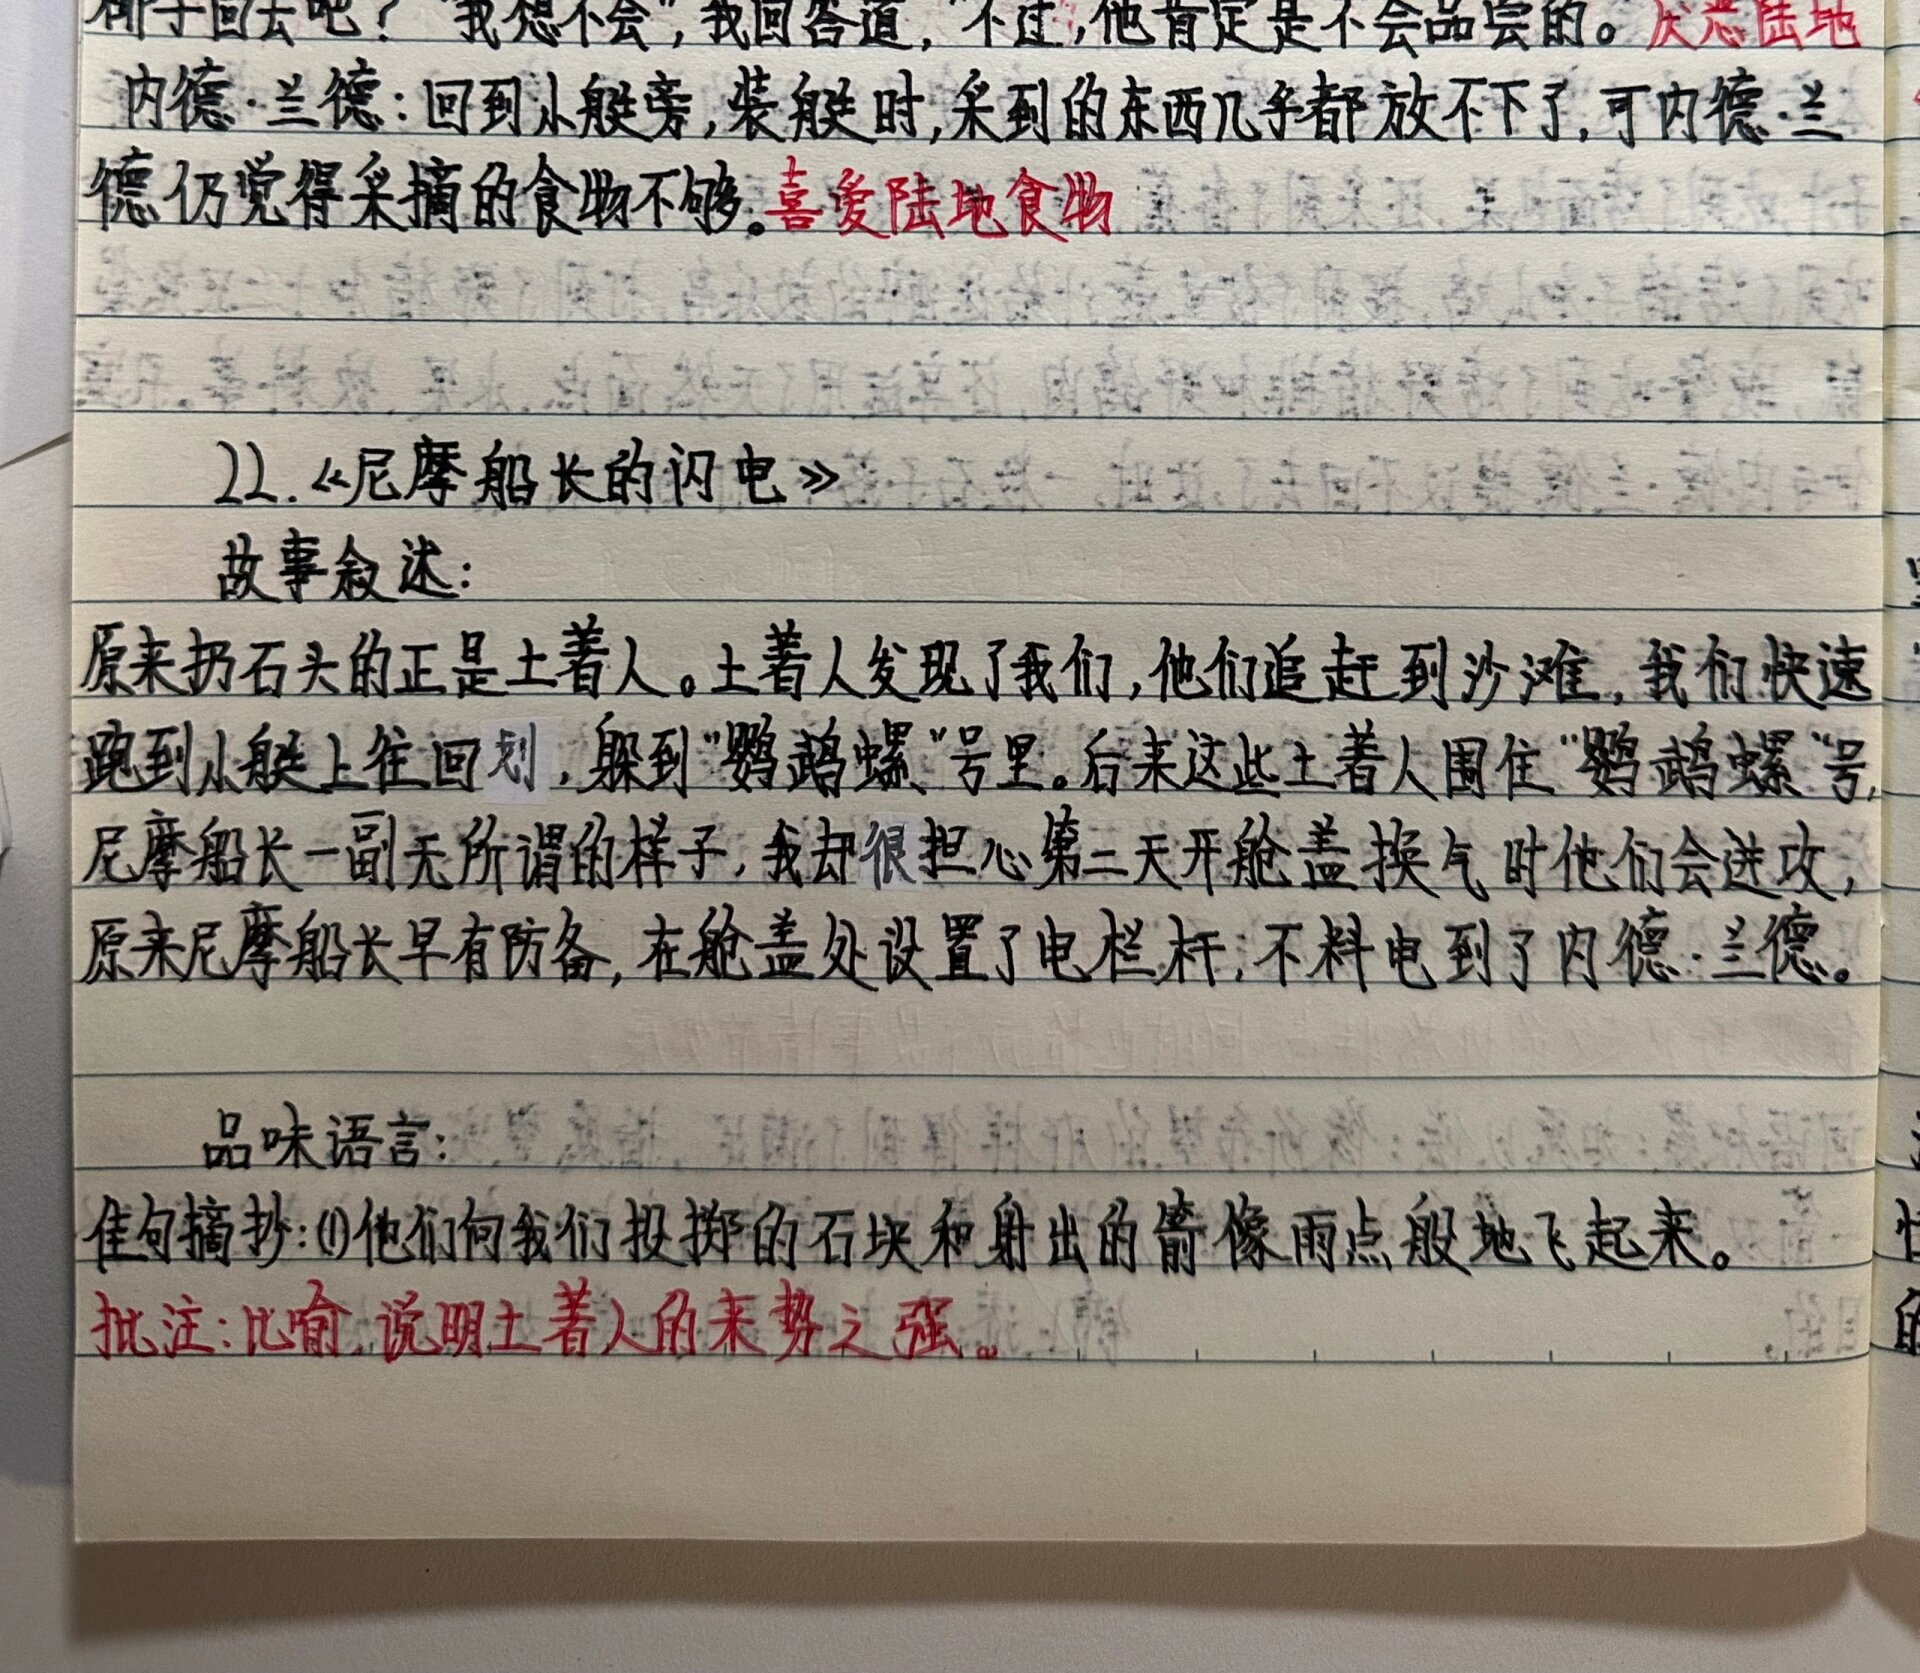 椰子回去吧？“我想不会”，我回答道，“不过，他肯定是不会品尝的。厌恶陆地
内德·兰德：回到小艇旁，装艇时，采到的东西几乎都放不下了，可内德·兰
德仍觉得采摘的食物不够。喜爱陆地食物
22.《尼摩船长的闪电》
故事叙述：
原来扔石头的正是土着人。土着人发现了我们，他们追赶到沙滩，我们快速
跑到小艇上往回划，躲到“鹦鹉螺”号里。后来这些土着人围住“鹦鹉螺”号，
尼摩船长一副无所谓的样子，我却很担心第二天开舱盖换气时他们会进攻，
原来尼摩船长早有防备，在舱盖处设置了电栏杆；不料电到了内德·兰德。
品味语言：
佳句摘抄：(1)他们向我们投掷的石块和射出的箭像雨点般地飞起来。
批注：比喻，说明土着人的来势之强。